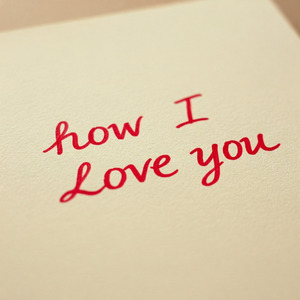 how I
Love you